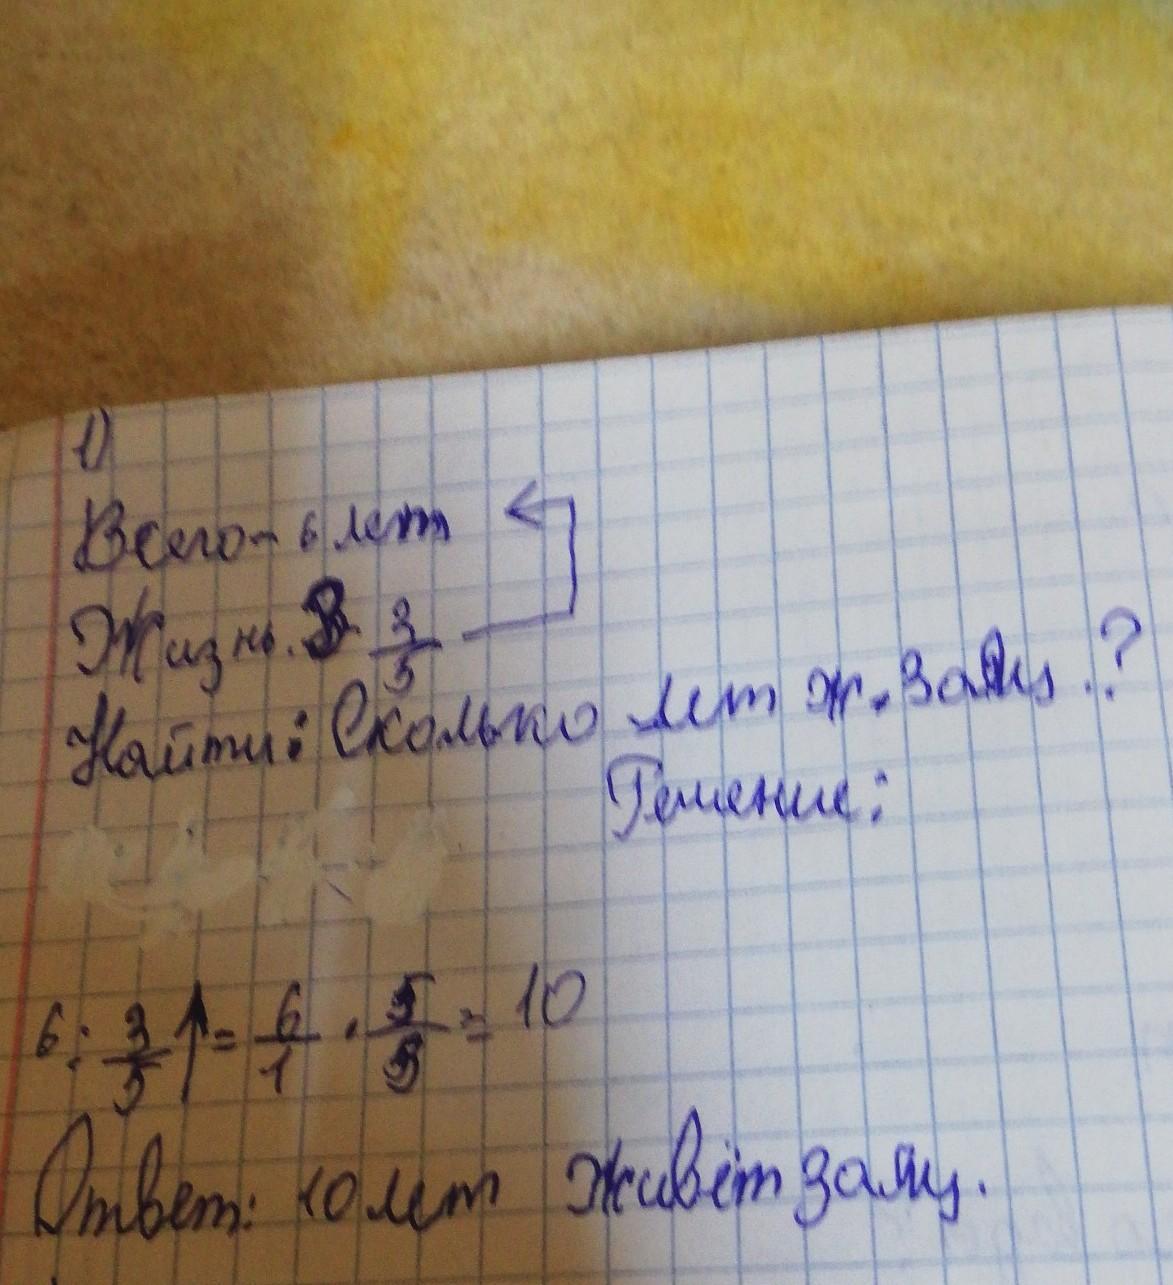 1)
Всего - 6 лет
Жизнь. З 3/5
Найти: Сколько лет ж. заяц.?
Решение:
6 : 3/5 = 6/1 · 5/3 = 10
Ответ: 10 лет живёт заяц.